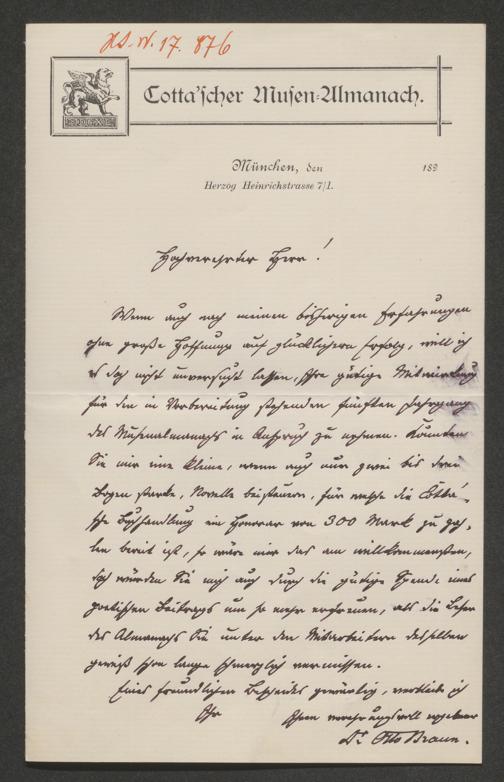 Cotta'scher Musen-Almanach.
München, den 189
Herzog Heinrichstrasse 7/I.
Hochverehrter Herr!
Wenn auch nach meinen bisherigen Erfahrungen
ohne große Hoffnung auf glücklichern Erfolg, will ich
es doch nicht unversucht lassen, Ihre gütige Mitwirkung
für den in Vorbereitung stehenden fünften Jahrgang
des Musenalmanachs in Anspruch zu nehmen. Könnten
Sie mir eine kleine, wenn auch nur zwei bis drei
Bogen starke, Novelle beisteuern, für welche die Cotta'-
sche Buchhandlung ein Honorar von 300 Mark zu zah-
len bereit ist, so wäre mir das am willkommensten,
doch würden Sie mich auch durch die gütige Spende eines
poetischen Beitrags um so mehr erfreuen, als die Leser
des Almanachs Sie unter den Mitarbeitern desselben
gewiß schon lange schmerzlich vermissen.
Eines freundlichen Bescheides gewärtig, verbleibe ich
Ihr Ihnen verehrungsvoll ergebener
Dr Otto Braun.